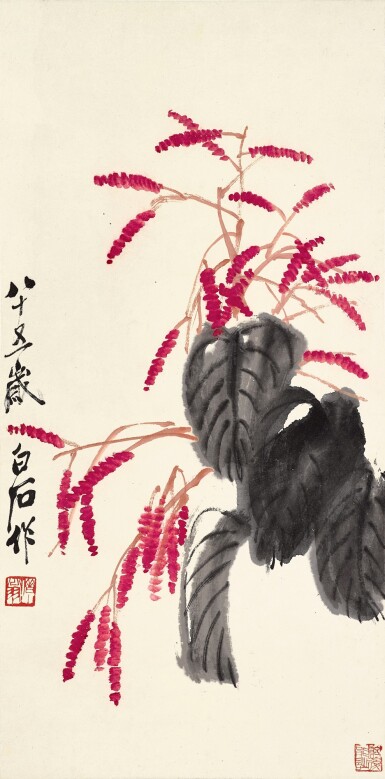 八十五歲白石作